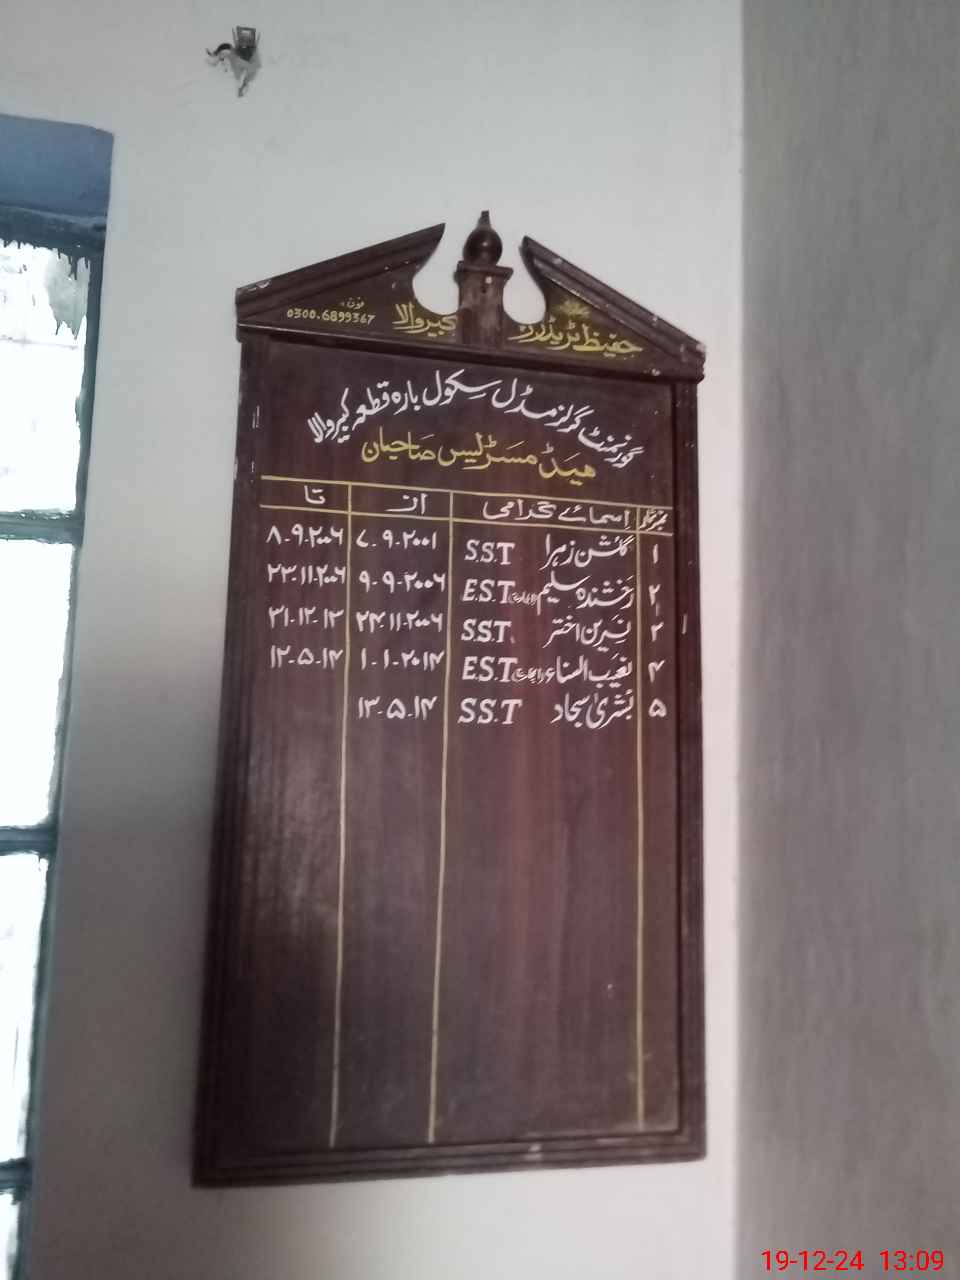 حفیظ ٹریڈرز کبیروالا
فون: 0300.6899367
گورنمنٹ گرلز مڈل سکول بارہ قطعہ کبیروالا
ہیڈ مسٹریس صاحبان
نمبر شمار اسمائے گرامی از تا
۱ گلشن زہرا S.S.T ۷-۹-۲۰۰۱ ۸-۹-۲۰۰۶
۲ رخشندہ سلیم E.S.T ۹-۹-۲۰۰۶ ۲۳-۱۱-۲۰۰۶
۳ نسرین اختر S.S.T ۲۴-۱۱-۲۰۰۶ ۳۱-۱۲-۱۳
۴ نعیب النساء E.S.T ۱-۱-۲۰۱۴ ۱۲-۵-۱۴
۵ بشریٰ سجاد S.S.T ۱۳-۵-۱۴
19-12-24 13:09